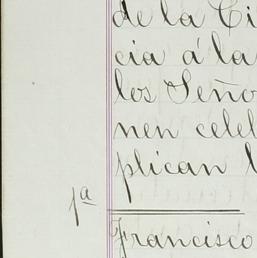 de la Ci
cia á la
los Seño
nen celeb
plican l
1ª
Francisco